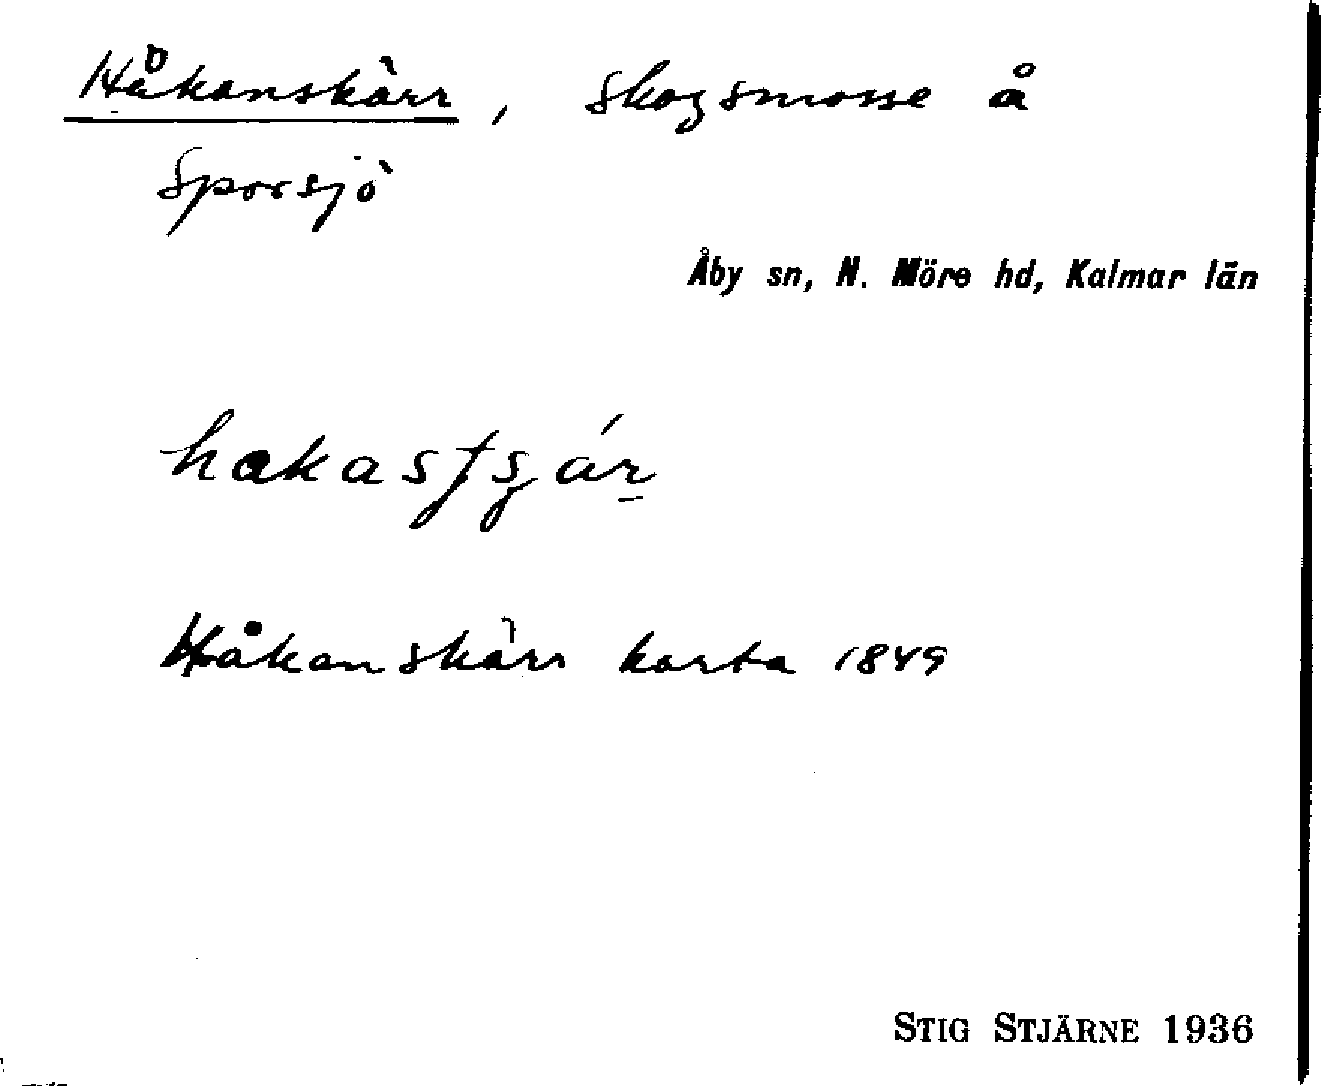 Håkanskärr, skogsmosse å
Sporsjö
Åby sn, N. Möre hd, Kalmar län
Håkanskärr karta 1849
STIG STJÄRNE 1936